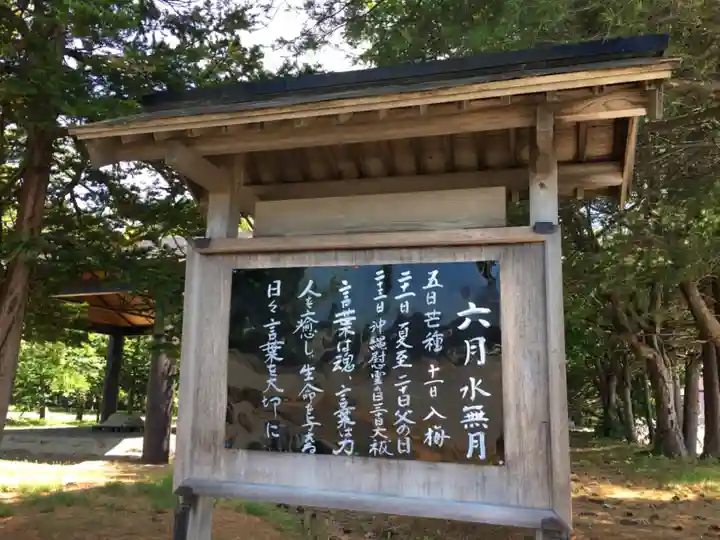 六月 水無月
五日芒種 十一日入梅
二十一日夏至 二十一日父の日
二十三日沖縄慰霊の日 三十日大祓
言葉は魂、言葉は力
人を癒し、生命を与える
日々言葉を大切に